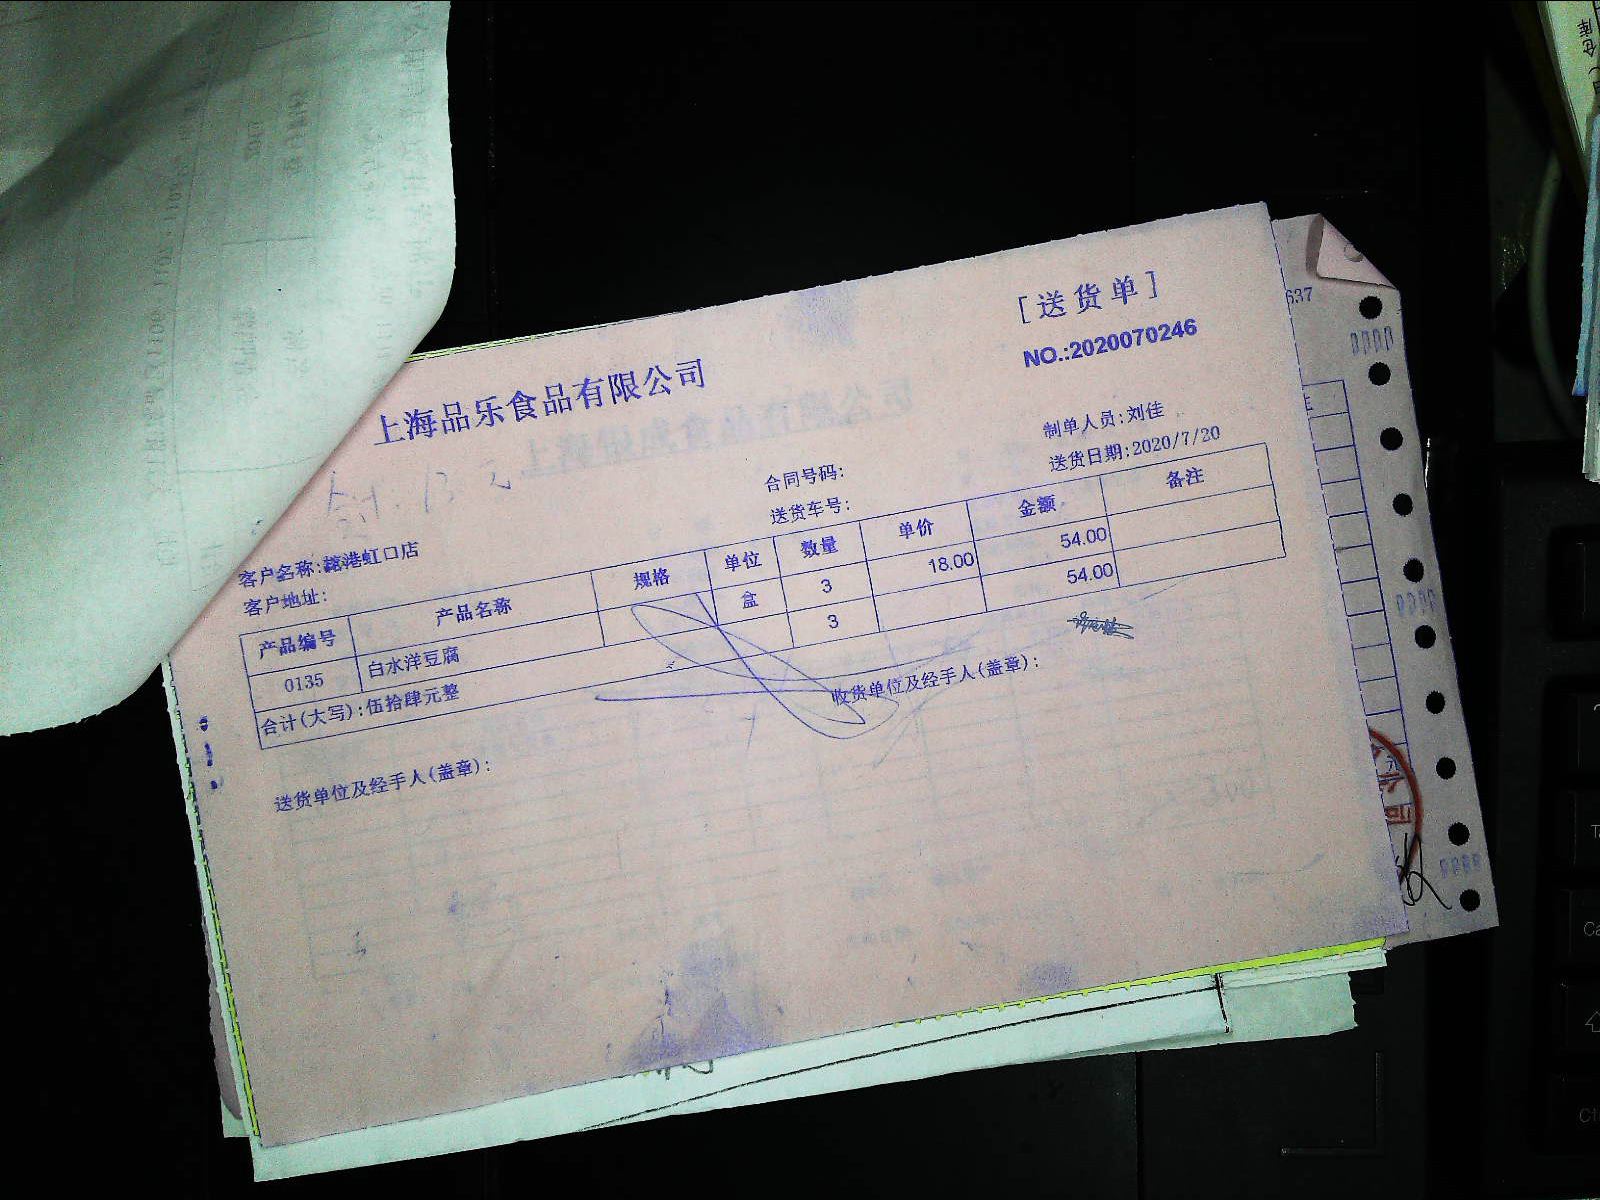 [送货单]
NO.:2020070246
上海品乐食品有限公司
制单人员:刘佳
合同号码:
送货日期:2020/7/20
送货车号:
客户名称:港虹口店
客户地址:
产品编号 产品名称 规格 单位 数量 单价 金额 备注
0135 白水洋豆腐 盒 3 18.00 54.00
合计(大写):伍拾肆元整 3 54.00
送货单位及经手人(盖章):
收货单位及经手人(盖章):
637